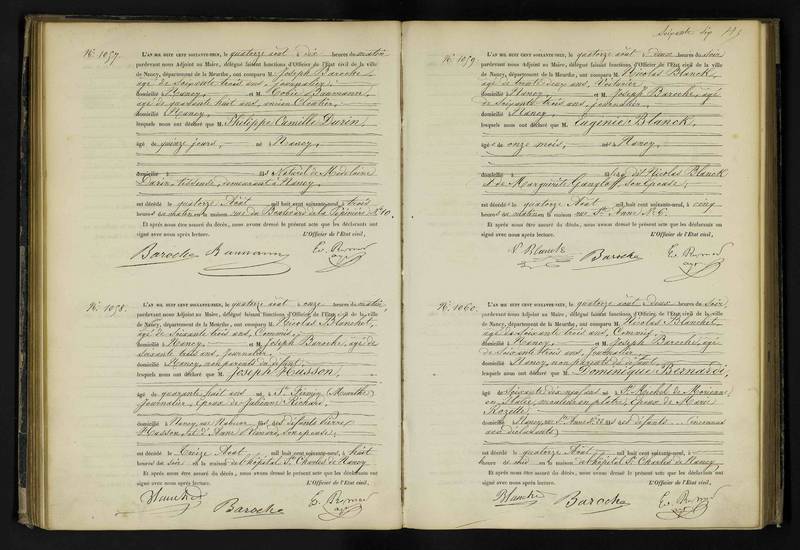 Nº 1057.
L'AN MIL HUIT CENT SOIXANTE-NEUF, le quatorze août à dix heures du matin
pardevant nous Adjoint au Maire, délégué faisant fonctions d'Officier de l'État civil de la ville
de Nancy, département de la Meurthe, ont comparu M. Joseph Baroche,
âgé de soixante trois ans, journalier,
domicilié à Nancy, et M. Baumann,
âgé de quarante huit ans, ancien
domicilié à Nancy,
lesquels nous ont déclaré que M. Philippe Camille Durin,
âgé de quinze jours, né à Nancy,
domicilié à fils Naturel de Madelaine
Durin, demeurant à Nancy,
est décédé le quatorze Août mil huit cent soixante-neuf, à trois
heures du matin en la maison rue du Boulevard de la Pépinière Nº 10.
Et après nous être assuré du décès, nous avons dressé le présent acte que les déclarants ont
signé avec nous après lecture. L'Officier de l'État civil,
Baroche Baumann
Nº 1058.
L'AN MIL HUIT CENT SOIXANTE-NEUF, le quatorze août à onze heures du matin,
pardevant nous Adjoint au Maire, délégué faisant fonctions d'Officier de l'État civil de la ville
de Nancy, département de la Meurthe, ont comparu M. Nicolas Blanchet,
âgé de soixante trois ans, Commis,
domicilié à Nancy, et M. Joseph Baroche, âgé de
soixante trois ans, journalier,
domicilié à Nancy, non parents du défunt,
lesquels nous ont déclaré que M. Joseph Husson,
âgé de quarante huit ans né à St Firmin (Meurthe)
journalier, époux de Julienne Richard,
domicilié à Nancy, rue fils des défunts Pierre
Husson, et d'Anne son épouse,
est décédé le Treize Août mil huit cent soixante-neuf, à huit
heures du soir en la maison de l'hôpital St Charles de Nancy
Et après nous être assuré du décès, nous avons dressé le présent acte que les déclarants ont
signé avec nous après lecture. L'Officier de l'État civil,
Blanchet Baroche
Soixante dix
Nº 1059.
L'AN MIL HUIT CENT SOIXANTE-NEUF, le quatorze août à deux heures du soir
pardevant nous Adjoint au Maire, délégué faisant fonctions d'Officier de l'État civil de la ville
de Nancy, département de la Meurthe, ont comparu M. Nicolas Blanck,
âgé de trente deux ans,
domicilié à Nancy, et M. Joseph Baroche, âgé
de soixante trois ans, journalier,
domicilié à Nancy,
lesquels nous ont déclaré que M. Eugénie Blanck,
âgé de onze mois, né à Nancy,
domicilié à fille de Nicolas Blanck
et de Marguerite son épouse,
est décédé le quatorze Août mil huit cent soixante-neuf, à cinq
heures du matin en la maison rue Ste Anne Nº 6.
Et après nous être assuré du décès, nous avons dressé le présent acte que les déclarants ont
signé avec nous après lecture. L'Officier de l'État civil,
N. Blanck Baroche
Nº 1060.
L'AN MIL HUIT CENT SOIXANTE-NEUF, le quatorze août à deux heures du soir,
pardevant nous Adjoint au Maire, délégué faisant fonctions d'Officier de l'État civil de la ville
de Nancy, département de la Meurthe, ont comparu M. Nicolas Blanchet,
âgé de soixante trois ans, Commis,
domicilié à Nancy, et M. Joseph Baroche, âgé
de soixante trois ans, journalier,
domicilié à Nancy, non parents du défunt,
lesquels nous ont déclaré que M. Dominique Bernardi,
âgé de soixante dix neuf ans né à St Michel de
en Italie, mouleur en plâtre, époux de Marie
domicilié à Nancy, rue Ste Anne fils des défunts
aux déclarants,
est décédé le quatorze Août mil huit cent soixante-neuf, à
heures de midi en la maison à l'hôpital St Charles de Nancy,
Et après nous être assuré du décès, nous avons dressé le présent acte que les déclarants ont
signé avec nous après lecture. L'Officier de l'État civil,
Blanchet Baroche